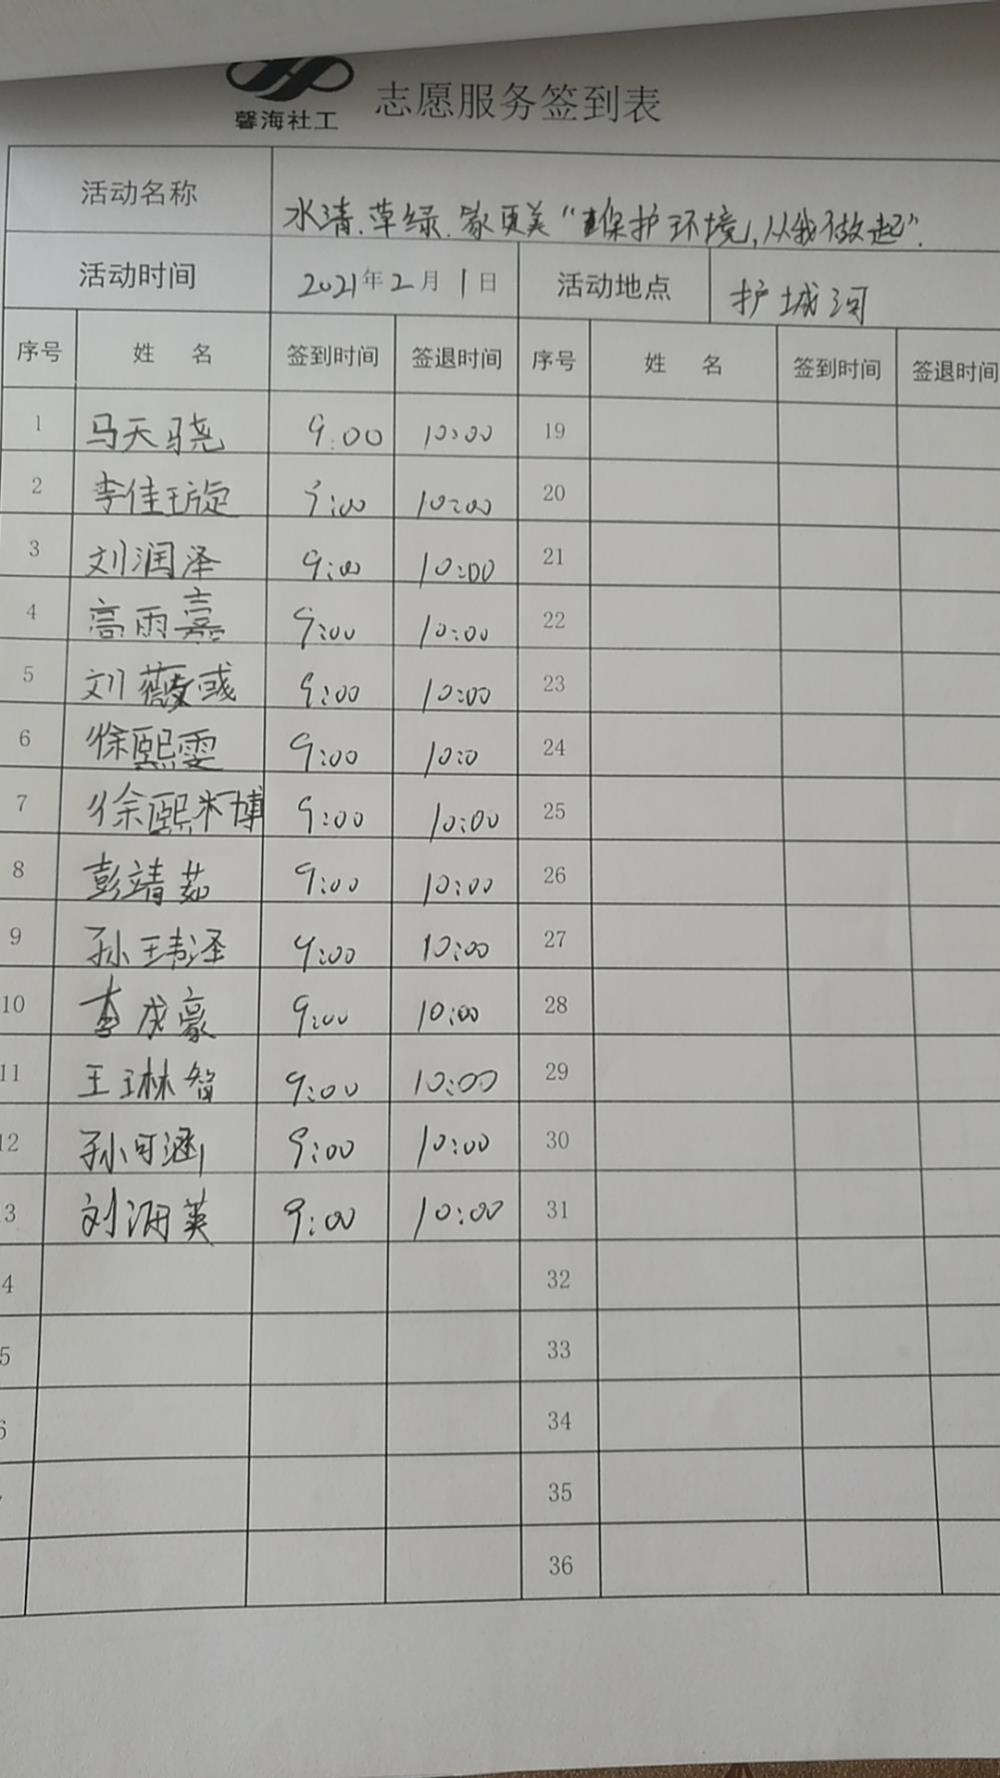 馨海社工 志愿服务签到表
活动名称 水清.草绿.家更美“保护环境,从我做起”.
活动时间 2021年2月1日 活动地点 护城河
序号 姓 名 签到时间 签退时间 序号 姓 名 签到时间 签退时间
1 马天骁 9:00 10:00 19
2 李佳璇 9:00 10:00 20
3 刘润泽 9:00 10:00 21
4 高雨嘉 9:00 10:00 22
5 刘薇彧 9:00 10:00 23
6 徐熙雯 9:00 10:0 24
7 徐熙博 9:00 10:00 25
8 彭靖茹 9:00 10:00 26
9 孙玮泽 9:00 10:00 27
10 李成豪 9:00 10:00 28
11 王琳智 9:00 10:00 29
12 孙可涵 9:00 10:00 30
3 刘英 9:00 10:00 31
4 32
5 33
6 34
35
36